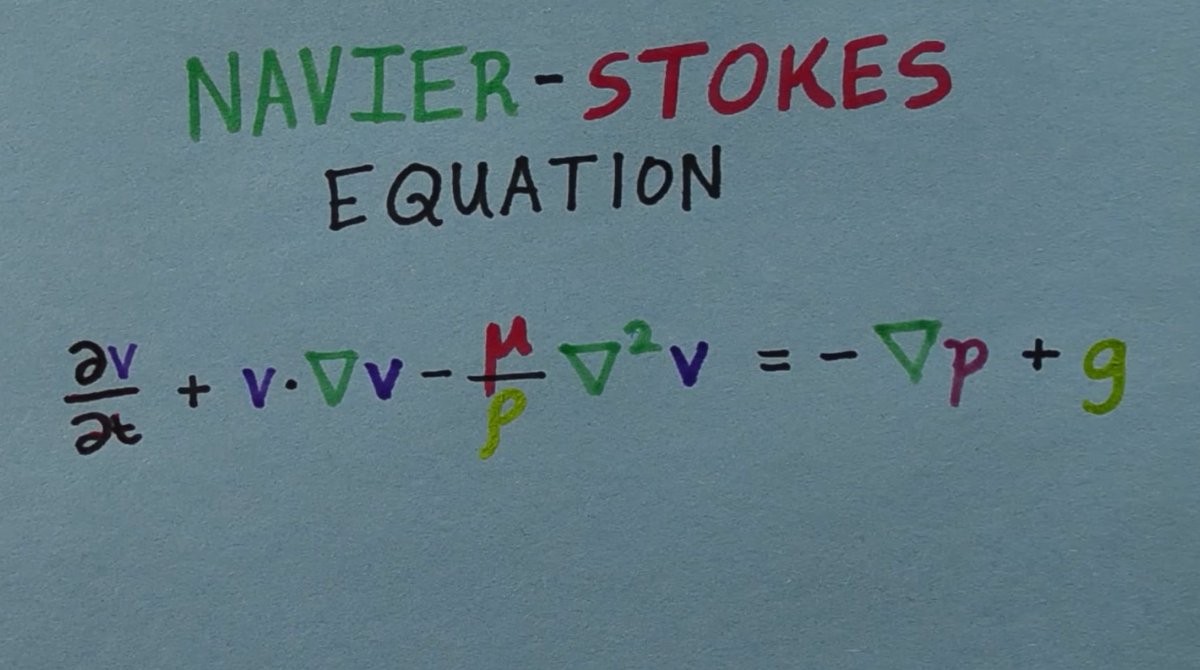 NAVIER-STOKES
EQUATION
∂v/∂t + v·∇v - μ/ρ ∇²v = - ∇p + g